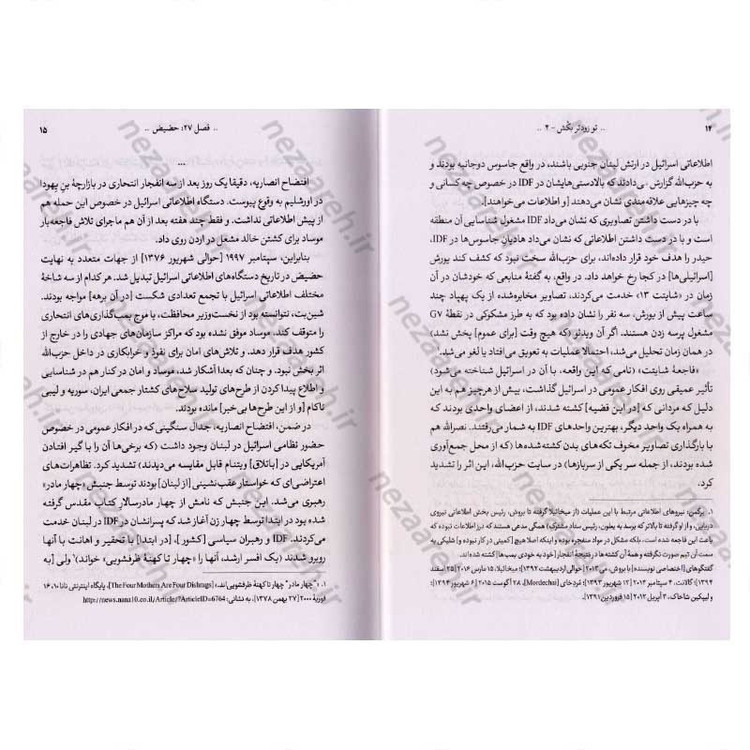 ۱۴
.. تو زودتر بکُش - ۲ ..
اطلاعاتی اسرائیل در ارتش لبنان جنوبی باشند، در واقع جاسوس دوجانبه بودند و
به حزب‌الله گزارش می‌دادند که بالادستی‌هایشان در IDF در خصوص چه کسانی و
چه چیزهایی علاقه‌مندی نشان می‌دهند [و اطلاعات می‌خواهند].
با در دست داشتن تصاویری که نشان می‌داد IDF مشغول شناسایی آن منطقه
است و با در دست داشتن اطلاعاتی که نشان می‌داد هادیان جاسوس‌ها در IDF،
حیدر را هدف خود قرار داده‌اند، برای حزب‌الله سخت نبود که کشف کند یورش
[اسرائیلی‌ها] در کجا رخ خواهد داد. در واقع، به گفتهٔ منابعی که خودشان در آن
زمان در «شایتت ۱۳» خدمت می‌کردند، تصاویر مخابره‌شده از یک پهپاد چند
ساعت پیش از یورش، سه نفر را نشان داده بود که به طرز مشکوکی در نقطهٔ G7
مشغول پرسه زدن هستند. اگر آن ویدئو (که هیچ وقت [برای عموم] پخش نشد)
در همان زمان تحلیل می‌شد، احتمالاً عملیات به تعویق می‌افتاد یا لغو می‌شد.
«فاجعهٔ شایتت» (نامی که این واقعه، با آن در اسرائیل شناخته می‌شود)
تأثیر عمیقی روی افکار عمومی در اسرائیل گذاشت، بیش از هرچیز هم به این
دلیل که مردانی که [در این قضیه] کشته شدند، از اعضای واحدی بودند که
به همراه یک واحد دیگر، بهترین واحدهای IDF به شمار می‌رفتند. نصرالله هم
با بارگذاری تصاویر مخوف تکه‌های بدن کشته‌شده‌ها (که از محل جمع‌آوری
شده بودند، از جمله سر یکی از سربازها) در سایت حزب‌الله، این اثر را تشدید
کرد.
۱. برعکس، نیروهای اطلاعاتی مرتبط با این عملیات (از میخائیلا گرفته تا بروش، رئیس بخش اطلاعاتی نیروی
دریایی، و از او گرفته تا بالاتر که برسد به بعلون، رئیس ستاد مشترک) همگی مدعی هستند که درز اطلاعات نبوده که
باعث این فاجعه شده، بلکه مشکل در مواد منفجره بوده و اینکه اصلاً هیچ [کمینی در کار نبوده و] شلیکی به
سمت آن تیم صورت نگرفته و همهٔ آن کشته‌ها در نتیجهٔ انفجار [خود به خودی بمب‌ها] کشته شده‌اند.
گفتگوهای [اختصاصی نویسنده] با بروش، می ۲۰۱۳ [حوالی اردیبهشت ۱۳۹۲]؛ میخائیلا، ۱۵ مارس ۲۰۱۶ [۲۵ اسفند
۱۳۹۴]؛ گالانت، ۴ سپتامبر ۲۰۱۴ [۱۳ شهریور ۱۳۹۳]؛ مُردخای (Mordechai)، ۲۸ آگوست ۲۰۱۵ [۶ شهریور ۱۳۹۴]؛
و لیپکین شاحاک، ۳ آپریل ۲۰۱۲ [۱۵ فروردین ۱۳۹۱].
.. فصل ۲۷: حضیض ..
۱۵
...
افتضاح انصاریه، دقیقاً یک روز بعد از سه انفجار انتحاری در بازارچهٔ بن یهودا
در اورشلیم به وقوع پیوست. دستگاه اطلاعاتی اسرائیل در خصوص این حمله هم
از پیش اطلاعاتی نداشت. و فقط چند هفته بعد از آن هم ماجرای تلاش فاجعه‌بار
موساد برای کشتن خالد مشعل در اردن روی داد.
بنابراین، سپتامبر ۱۹۹۷ [حوالی شهریور ۱۳۷۶] از جهات متعدد به نهایت
حضیض در تاریخ دستگاه‌های اطلاعاتی اسرائیل تبدیل شد. هر کدام از سه شاخهٔ
مختلف اطلاعاتی اسرائیل با تجمع تعدادی شکست [در آن برهه] مواجه بودند.
شین‌بت، نتوانسته بود از نخست‌وزیر محافظت، یا موج بمب‌گذاری‌های انتحاری
را متوقف کند. موساد موفق نشده بود که مراکز سازمان‌های جهادی را در خارج از
کشور هدف قرار دهد. و تلاش‌های امان برای نفوذ و خرابکاری در داخل حزب‌الله
اثر بخش نبود. و چنان که بعداً آشکار شد، موساد و امان در کنار هم در شناسایی
و اطلاع پیدا کردن از طرح‌های تولید سلاح‌های کشتار جمعی ایران، سوریه و لیبی
ناکام [و از این طرح‌ها بی‌خبر] مانده بودند.
در ضمن، افتضاح انصاریه، جدال سنگینی که در افکار عمومی در خصوص
حضور نظامی اسرائیل در لبنان وجود داشت (که برخی‌ها آن را با گیر افتادن
آمریکایی در [باتلاق] ویتنام قابل مقایسه می‌دیدند) تشدید کرد. تظاهرات‌های
اعتراضی‌ای که خواستار عقب‌نشینی [از لبنان] بودند توسط جنبش «چهار مادر»
رهبری می‌شد. این جنبش که نامش از چهار مادرسالارِ کتاب مقدس گرفته
شده بود در ابتدا توسط چهار زن آغاز شد که پسرانشان در IDF در لبنان خدمت
می‌کردند. IDF و رهبران سیاسی [کشور]، در [ابتدا] با تحقیر و اهانت با آنها
روبرو شدند (یک افسر ارشد، آنها را «چهار تا کهنهٔ ظرفشویی» خواند)۱ ولی [به
۱. «"چهار مادر" چهار تا کهنهٔ ظرفشویی‌اند» [The Four Mothers Are Four Dishrags]، پایگاه اینترنتی نانا ۱۰، ۱۶
فوریهٔ ۲۰۰۰ [۲۷ بهمن ۱۳۷۸]، به نشانی: http://news.nana10.co.il/Article/?ArticleID=6764
nezaareh.ir